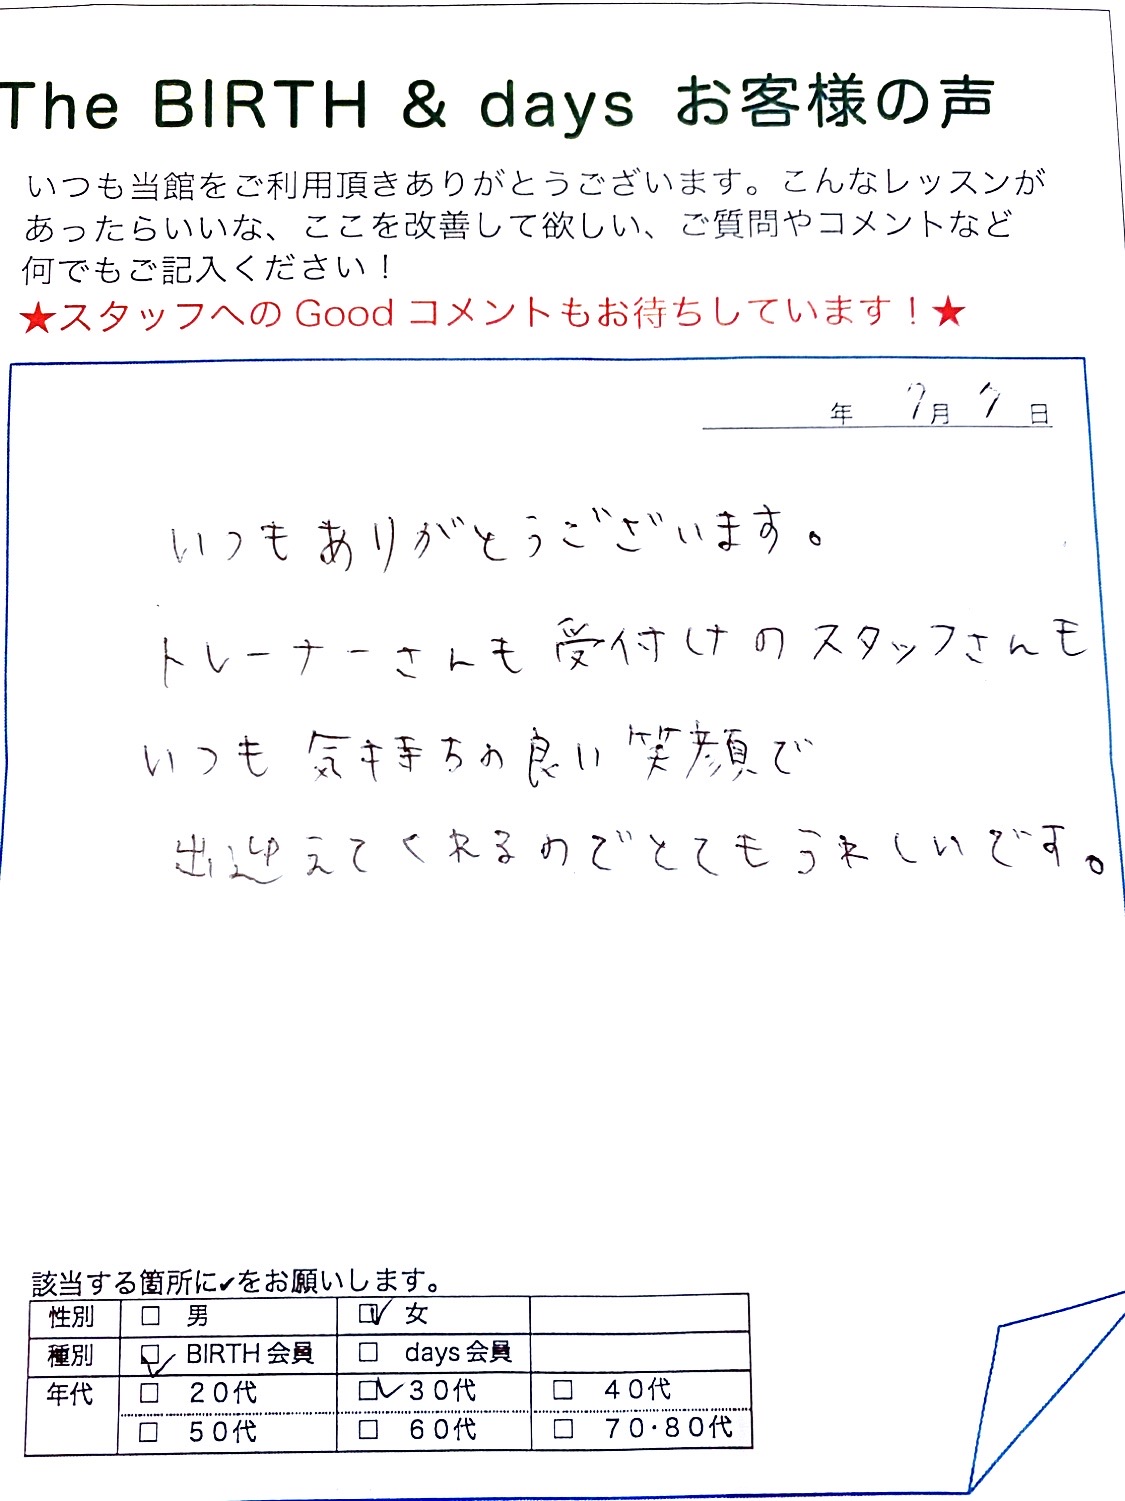 The BIRTH & days お客様の声
いつも当館をご利用頂きありがとうございます。こんなレッスンが
あったらいいな、ここを改善して欲しい、ご質問やコメントなど
何でもご記入ください！
★スタッフへの Good コメントもお待ちしています！★
年 7月 7日
いつもありがとうございます。
トレーナーさんも受付けのスタッフさんも
いつも気持ちの良い笑顔で
出迎えてくれるのでとてもうれしいです。
該当する箇所に✔をお願いします。
性別 □ 男 ☑ 女
種別 ☑ BIRTH会員 □ days会員
年代 □ 20代 ☑ 30代 □ 40代
□ 50代 □ 60代 □ 70・80代